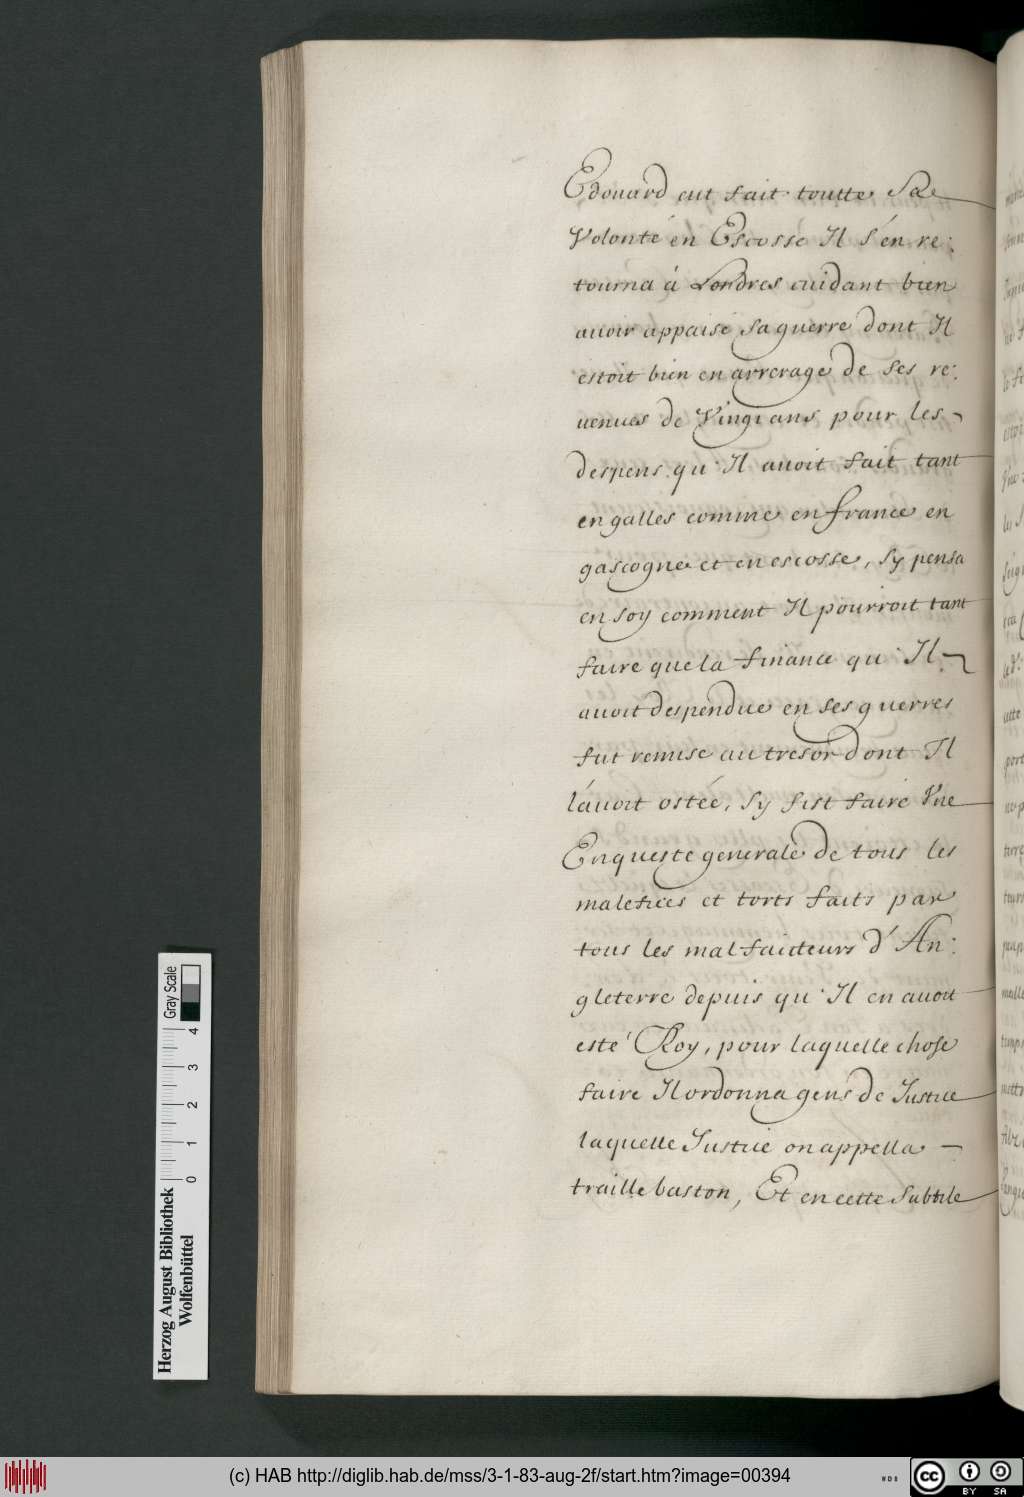 Edouard eut fait toutte Sa
Volonté en Escosse Il s'en re:
tourna à Londres cuidant bien
auoir appaisé sa guerre dont Il
estoit bien en arrerage de ses re:
uenues de Vingt ans pour les
despens qu'Il auoit fait tant
en galles comme en france en
gascogne et en escosse, sy pensa
en soy comment Il pourroit tant
faire que la finance qu'Il
auoit despendue en ses guerres
fut remise au tresor dont Il
l'auoit ostée, sy fist faire Vne
Enqueste generale de tous les
malefices et torts faits par
tous les malfaicteurs d'An:
gleterre depuis qu'Il en auoit
esté Roy, pour laquelle chose
faire Il ordonna gens de Justice
laquelle Justice on appella
traille baston, Et en cette subtile
Herzog August Bibliothek
Wolfenbüttel
0 1 2 3 4
Gray Scale
(c) HAB http://diglib.hab.de/mss/3-1-83-aug-2f/start.htm?image=00394
WDB
cc BY SA